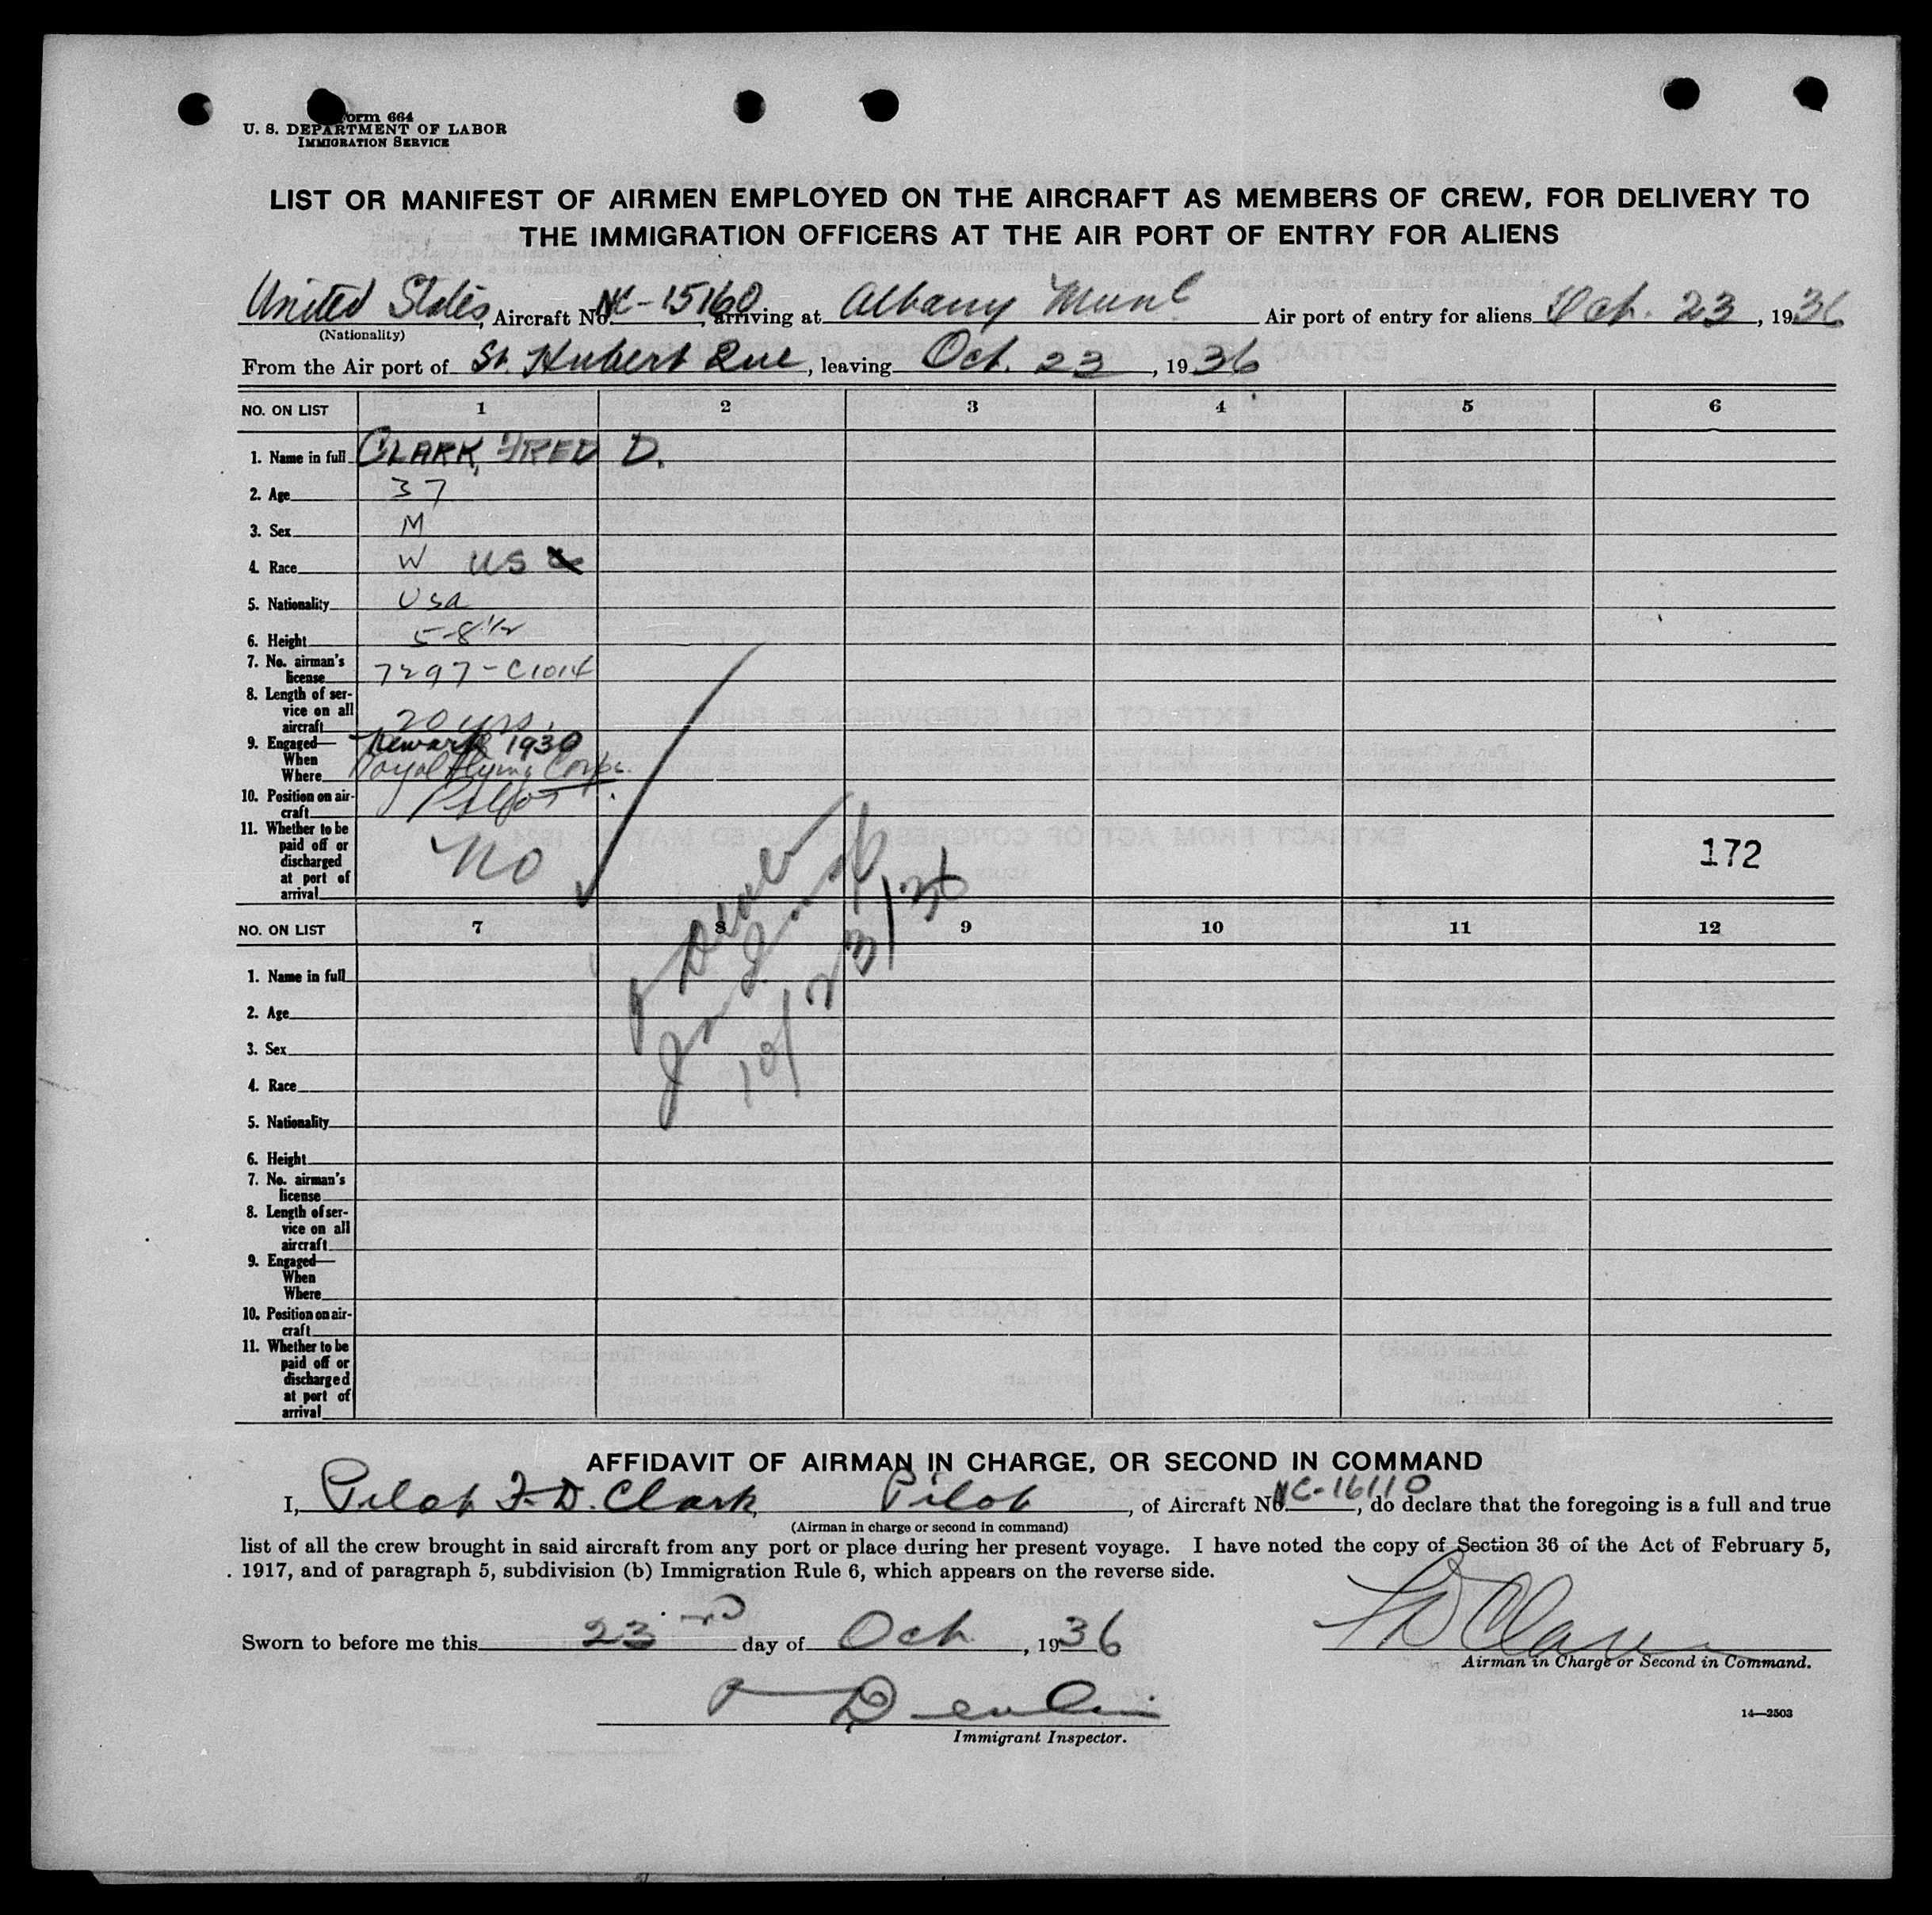 Form 664
U. S. DEPARTMENT OF LABOR
IMMIGRATION SERVICE
LIST OR MANIFEST OF AIRMEN EMPLOYED ON THE AIRCRAFT AS MEMBERS OF CREW, FOR DELIVERY TO
THE IMMIGRATION OFFICERS AT THE AIR PORT OF ENTRY FOR ALIENS
United States, Aircraft No. NC-15160, arriving at Albany Munl Air port of entry for aliens Oct. 23, 1936
(Nationality)
From the Air port of St. Hubert Que, leaving Oct. 23, 1936
NO. ON LIST 1 2 3 4 5 6
1. Name in full CLARK, FRED D.
2. Age 37
3. Sex M
4. Race W US
5. Nationality Usa
6. Height 5-8 1/2
7. No. airman's
license 7297-C1014
8. Length of ser-
vice on all
aircraft 20 yrs.
9. Engaged— Newark 1930
When
Where Royal Flying Corps.
10. Position on air-
craft Pilot
11. Whether to be
paid off or
discharged
at port of
arrival No
172
NO. ON LIST 7 8 9 10 11 12
10/23/36
1. Name in full
2. Age
3. Sex
4. Race
5. Nationality
6. Height
7. No. airman's
license
8. Length of ser-
vice on all
aircraft
9. Engaged—
When
Where
10. Position on air-
craft
11. Whether to be
paid off or
discharged
at port of
arrival
AFFIDAVIT OF AIRMAN IN CHARGE, OR SECOND IN COMMAND
I, Pilot F. D. Clark, Pilot, of Aircraft No. NC-16110, do declare that the foregoing is a full and true
(Airman in charge or second in command)
list of all the crew brought in said aircraft from any port or place during her present voyage. I have noted the copy of Section 36 of the Act of February 5,
1917, and of paragraph 5, subdivision (b) Immigration Rule 6, which appears on the reverse side.
F D Clark
Sworn to before me this 23rd day of Oct, 1936
Airman in Charge or Second in Command.
Devlin
Immigrant Inspector.
14—2503